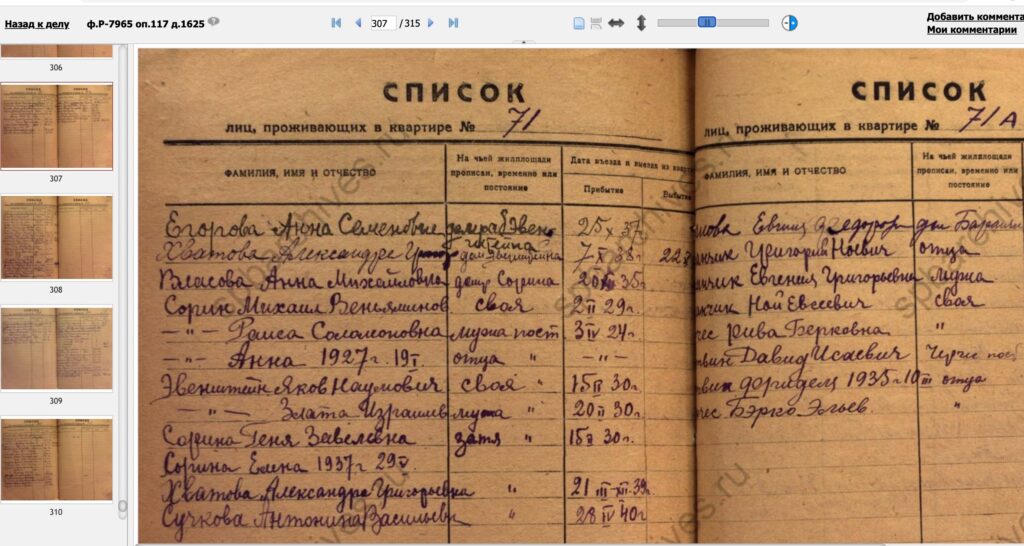 Назад к делу
ф.Р-7965 оп.117 д.1625
307 / 315
Добавить коммента
Мои комментарии
306
307
308
309
310
СПИСОК
лиц, проживающих в квартире № 71
ФАМИЛИЯ, ИМЯ И ОТЧЕСТВО
На чьей жилплощади прописан, временно или постояние
Дата въезда и выезда из кварт
Прибытие
Выбыти
Егорова Анна Семеновна 25 X 37
Хватова Александра 7 X 38г 22
Власова Анна Михайловна Сорина 35г
Сорин Михаил Веньяминов своя 2 II 29г.
-"- Раиса Соломоновна мужа пост 3 IV 24г.
-"- Анна 1927г. 19 отца " -"-
Эвенштейн Яков Наумович своя " 15 II 30г.
-"- Злата Израилев мужа " 20 II 30г.
Сорина Геня Завелевна зятя " 15 30г.
Сорина Елена 1937г 29
Хватова Александра Григорьевна " 21 III-XII-39г.
Сучкова Антонина Васильевн " 28 IV 40г
СПИСОК
лиц, проживающих в квартире № 71 А
ФАМИЛИЯ, ИМЯ И ОТЧЕСТВО
На чьей жилплощади прописан, временно или постояние
нова Евгия Федоров
нчик Григорий Ноевич отца
нчик Евгения Григорьевна мужа
нчик Ной Евсеевич своя
ес Рива Берковна "
Давид Исаевич пост
1935г 10 III отца
ес Бэрко Эльев. "
spbarchives.ru